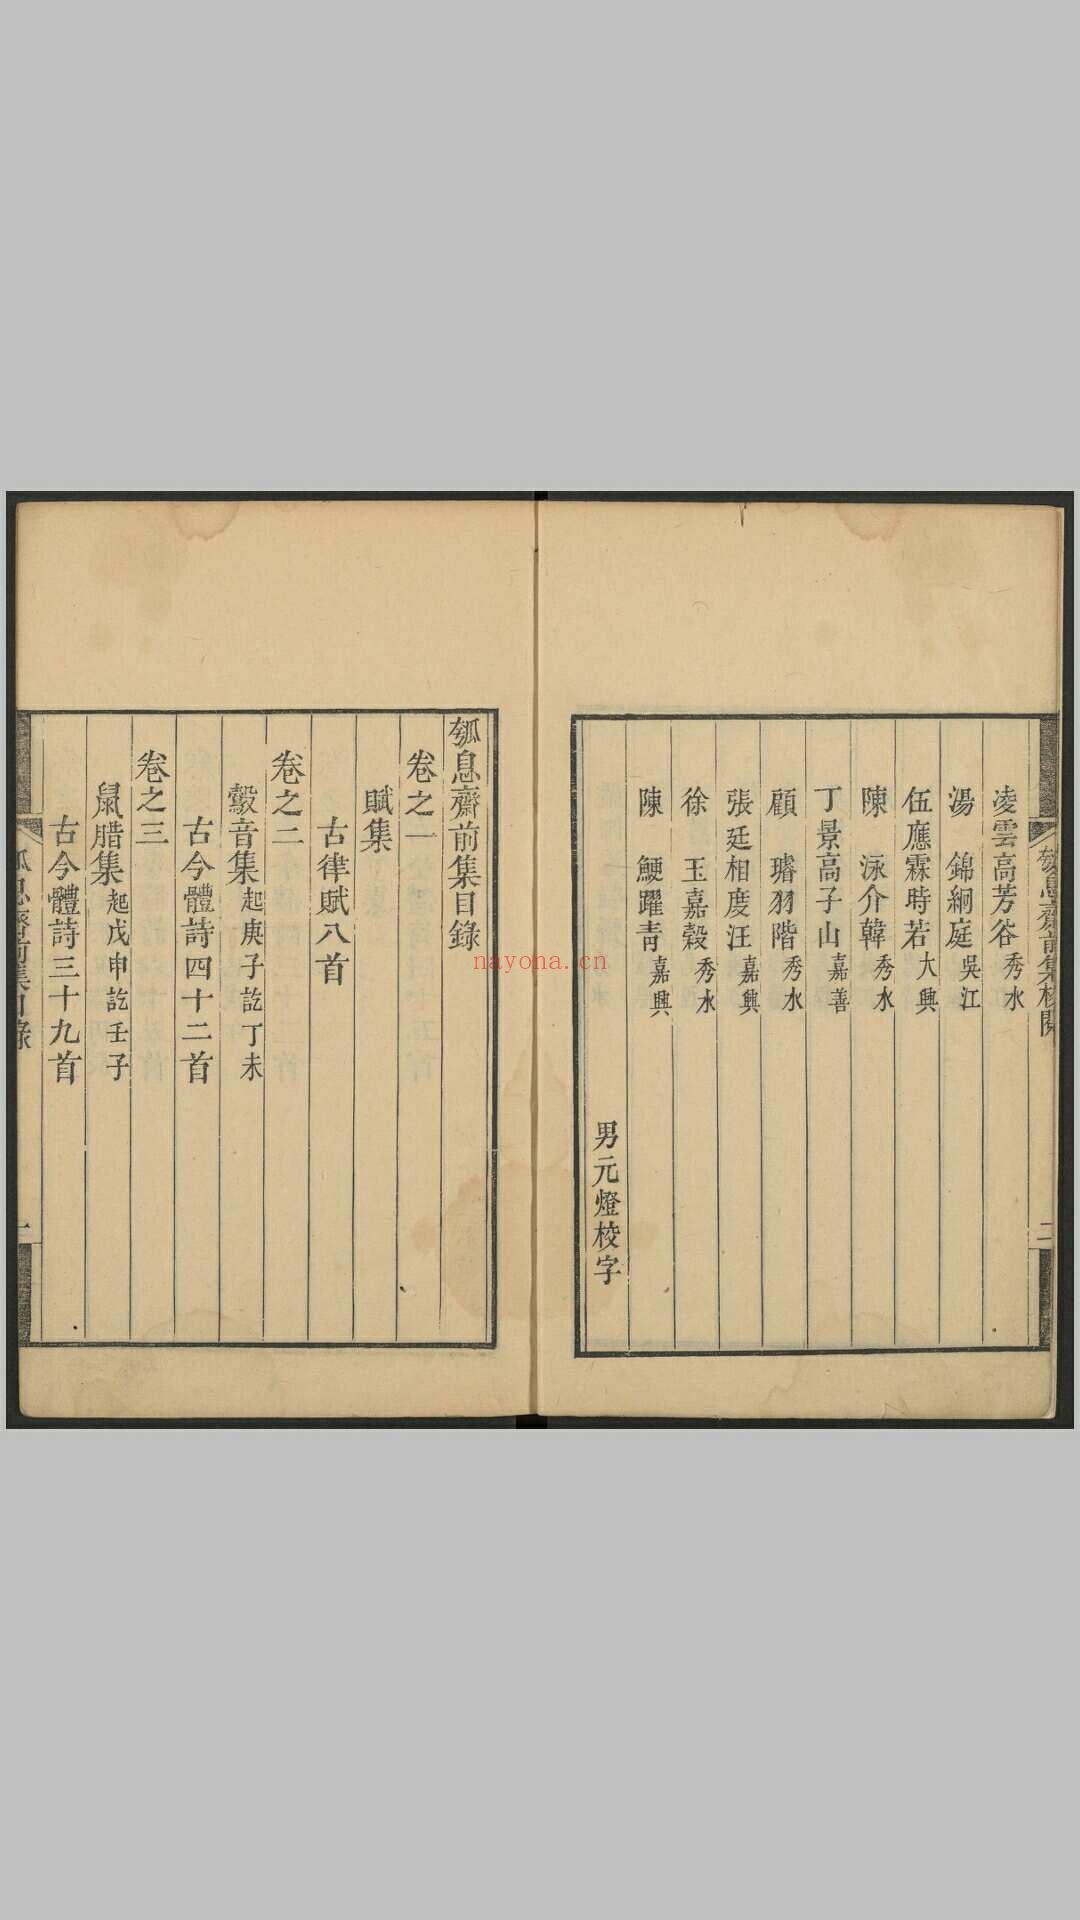 瓠息齋前集校閱
二
凌雲高芳谷秀水
湯 錦絅庭吳江
伍應霖時若大興
陳 泳介韓秀水
丁景高子山嘉善
顧 璿羽階秀水
張廷相度汪嘉興
徐 玉嘉穀秀水
陳 鯁躍青嘉興
男元燈校字
瓠息齋前集目錄
卷之一
賦集
古律賦八首
卷之二
鷇音集起庚子訖丁未
古今體詩四十二首
卷之三
鼠腊集起戊申訖壬子
古今體詩三十九首
瓠息齋前集目錄
一
nayona.cn